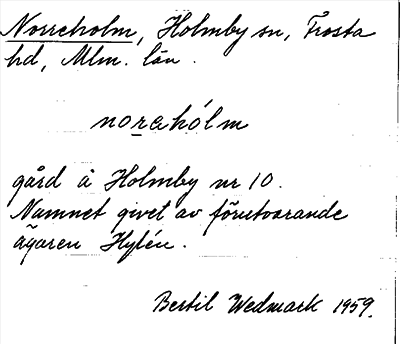 Norreholm, Holmby sn, Frosta
hd, Mlm. län.
norahólm
gård å Holmby nr 10.
Namnet givet av förutvarande
ägaren Hylén.
Bertil Wedmark 1959.